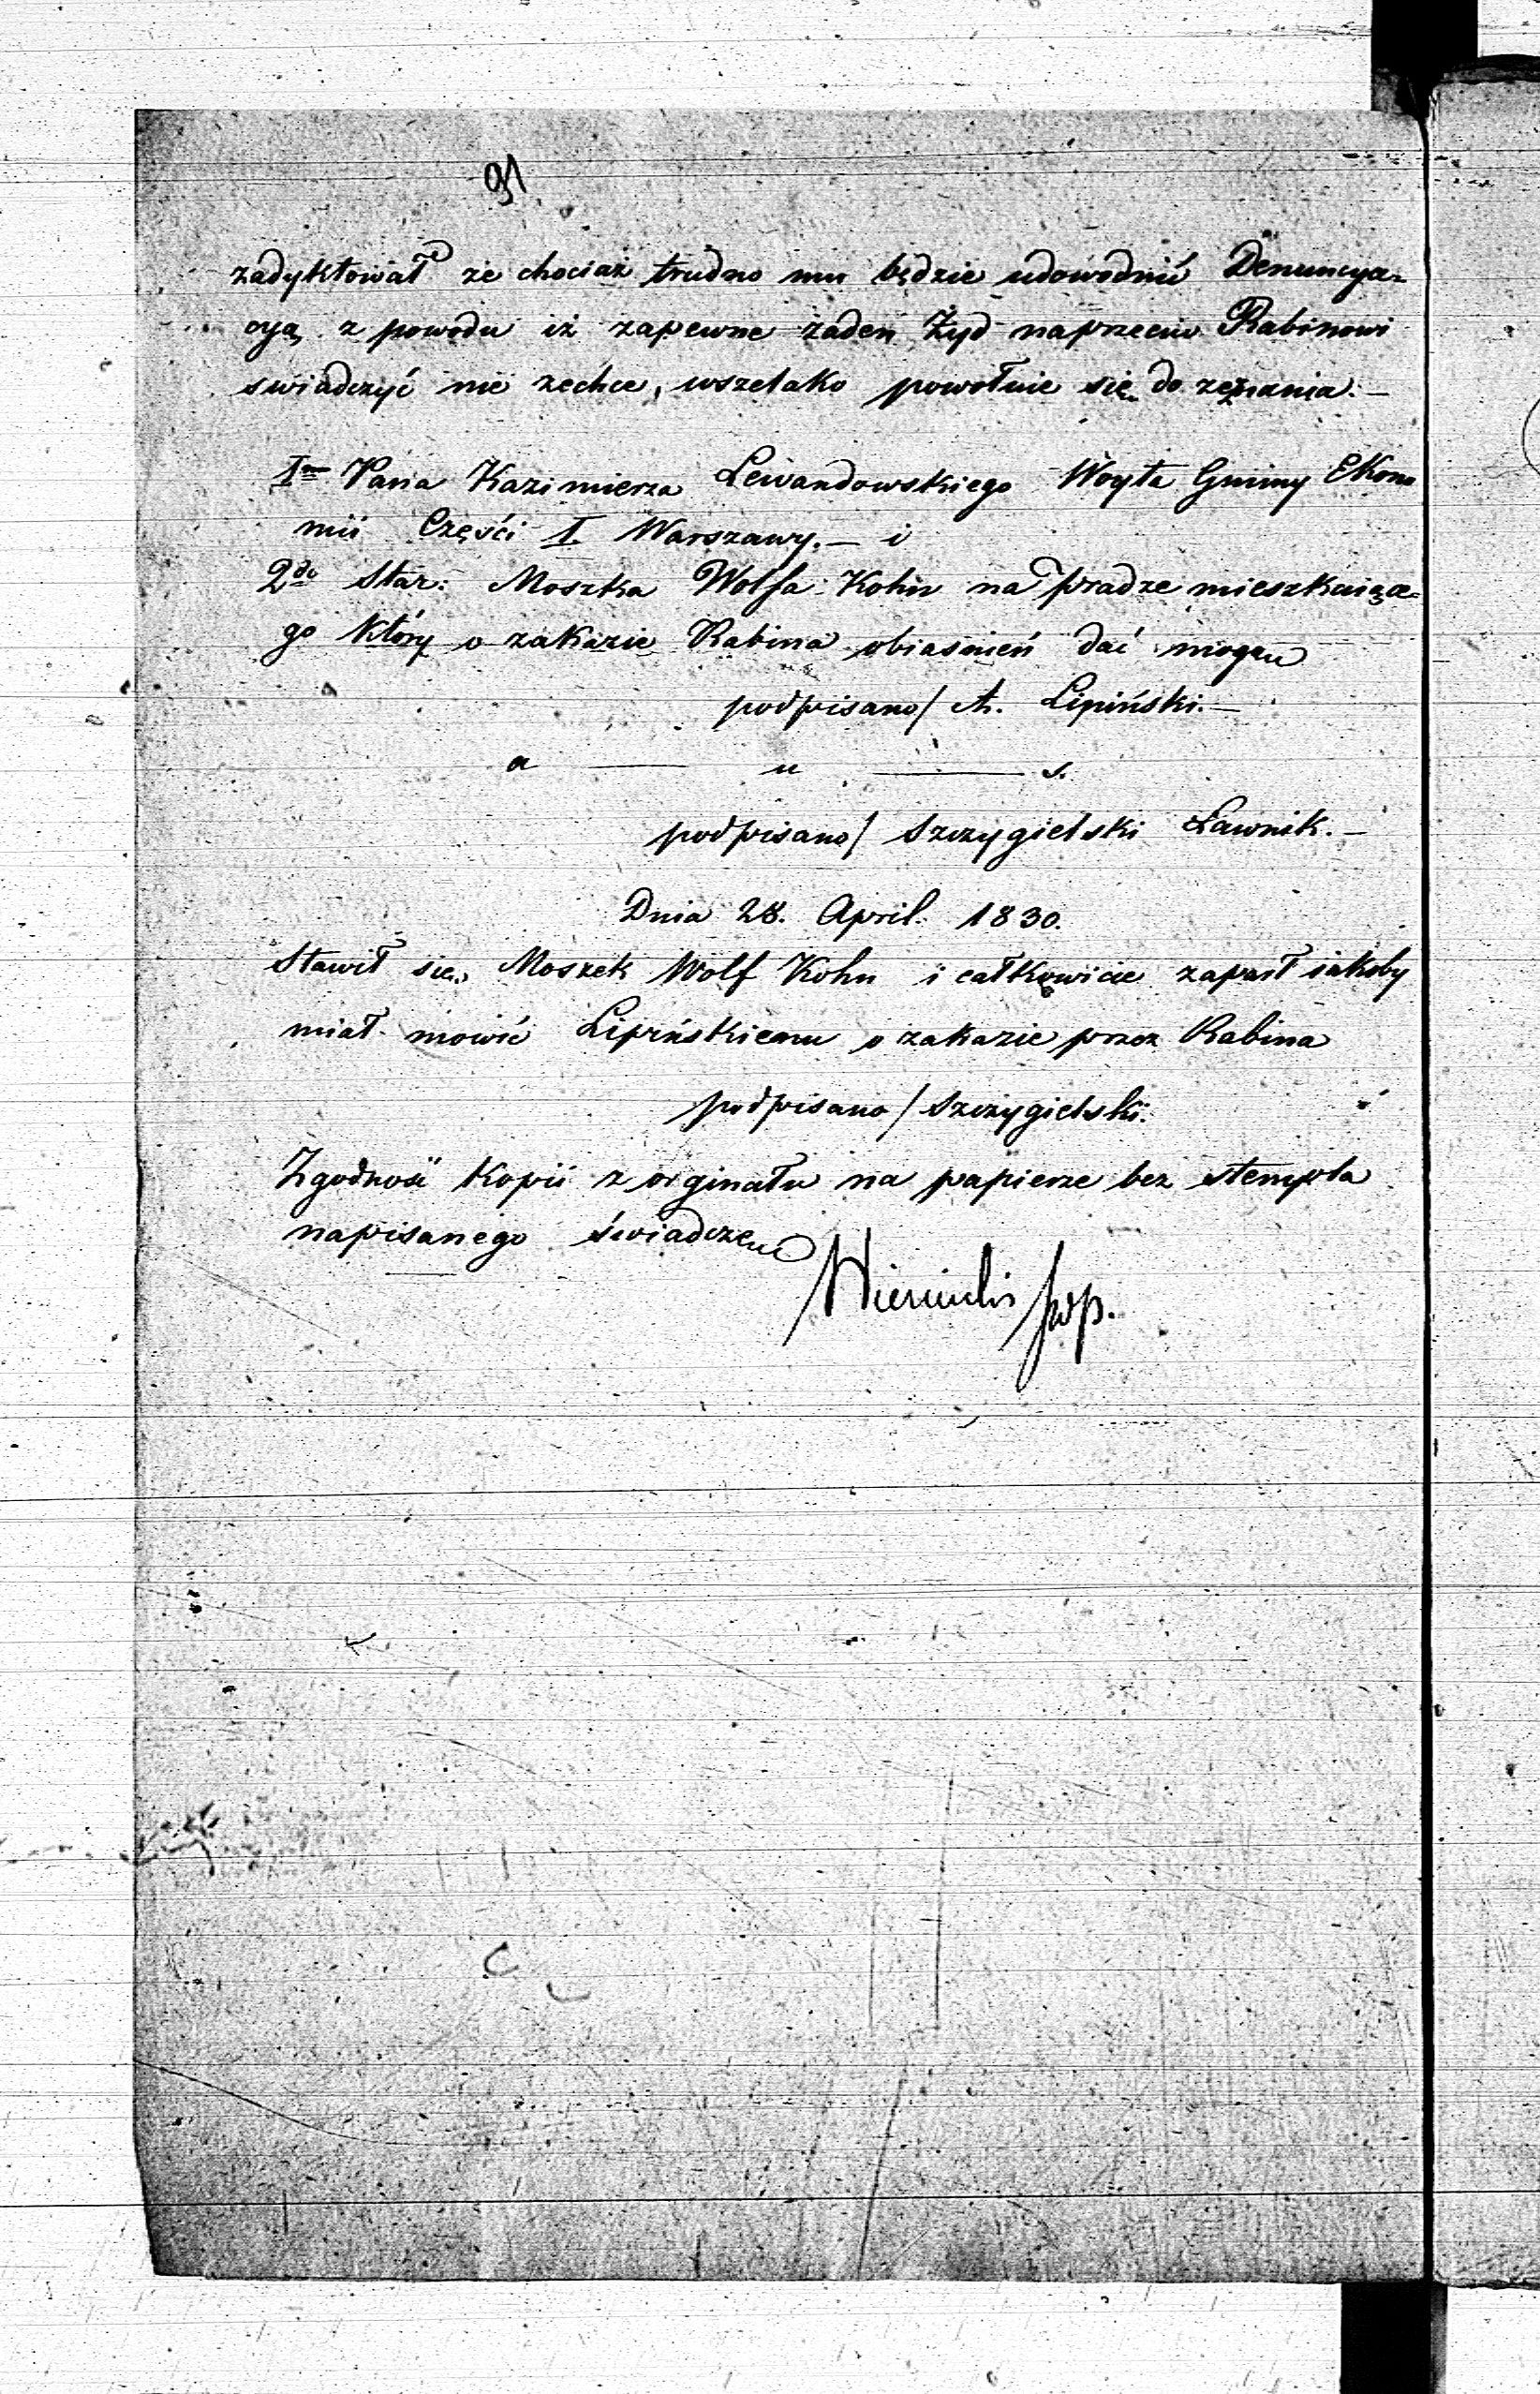 91
zadyktował że chociaż trudno mu będzie udowodnić Denuncya=
cyą z powodu iż zapewne żaden Żyd naprzeciw Rabinowi
swiadczyć nie zechce, wszelako powołuie się do zeznania. —
1mo Pana Kazimierza Lewandowskiego Woyta Gminy Ekono
mii Części I Warszawy. — i
2do Star: Moszka Wolfa Kohn na pradze mieszkaiące=
go który o zakazie Rabina obiasnień dać mogą
podpisano/ A. Lipiński. —
a — u — s.
podpisano/ Szczygielski Ławnik. —
Dnia 28. April. 1830.
Stawił się, Moszek Wolf Kohn i całkowicie zaparł iakoby
miał mowić Lipińskiemu o zakazie przez Rabina
podpisano/ Szczygielski.
Zgodność Kopii z orginału na papierze bez stempla
napisanego świadczę